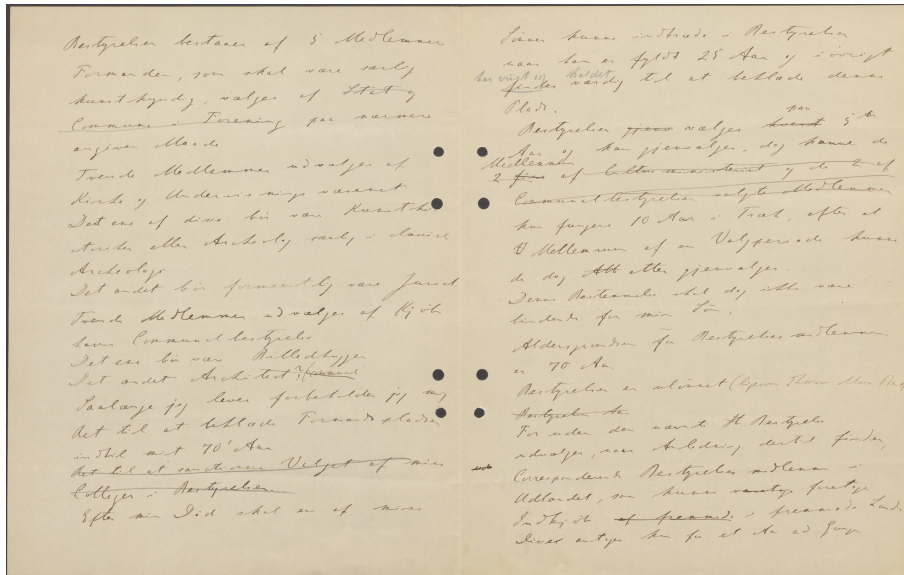 Bestyrelsen bestaaer af 5 Medlemmer
Formanden, som skal være særlig
kunstkyndig, vælges af Stat og
Commune i Forening paa nærmere
angiven Maade
Tvende Medlemmer udvælges af
Kirke og Undervisningsvæsenet
Det ene af disse bør være Kunsthi
storiker eller Archeolog særlig i classisk
Archeologi
Det andet bør formentlig være Jurist
Tvende Medlemmer udvælges af Kjöb
havns Communalbestyrelse
Det ene bør være Billedhugger
Det andet Architect?
Saalænge jeg lever forbeholder jeg mig
Ret til at beklæde Formandspladsen
indtil mit 70' Aar
Ret til at sanctionere Valget af mine
Colleger i Bestyrelsen
Efter min Död skal en af mine
Sönner kunne indtræde i Bestyrelsen
naar han er fyldt 25 Aar og i övrigt
har viist og holdet
findes værdig til at beklæde denne
Plads.
Bestyrelsen vælges paa 5
Aar og kan gjenvælges, dog kunne de
Medlemmer
2 af Cultusministeriet og de 2 af
Communalbestyrelsen valgte Medlemmer
kun fungere 10 Aar i Træk, efter at
Mellemrum af en Valgperiode kunne
de dog atter gjenvælges.
Denne Bestemmelse skal dog ikke være
bindende for min Sön.
Aldersgrændsen for Bestyrelsesmedlemmer
er 70 Aar
Bestyrelsen er ulönnet
Bestyrelsen
For uden den nævnte Bestyrelse
udvælges, naar Anledning dertil findes,
Corresponderende Bestyrelsesmedlemmer i
Udlandet, som kunne foretage
Indkjöb af fremmede i fremmede Lande
for et Aar ad Gangen